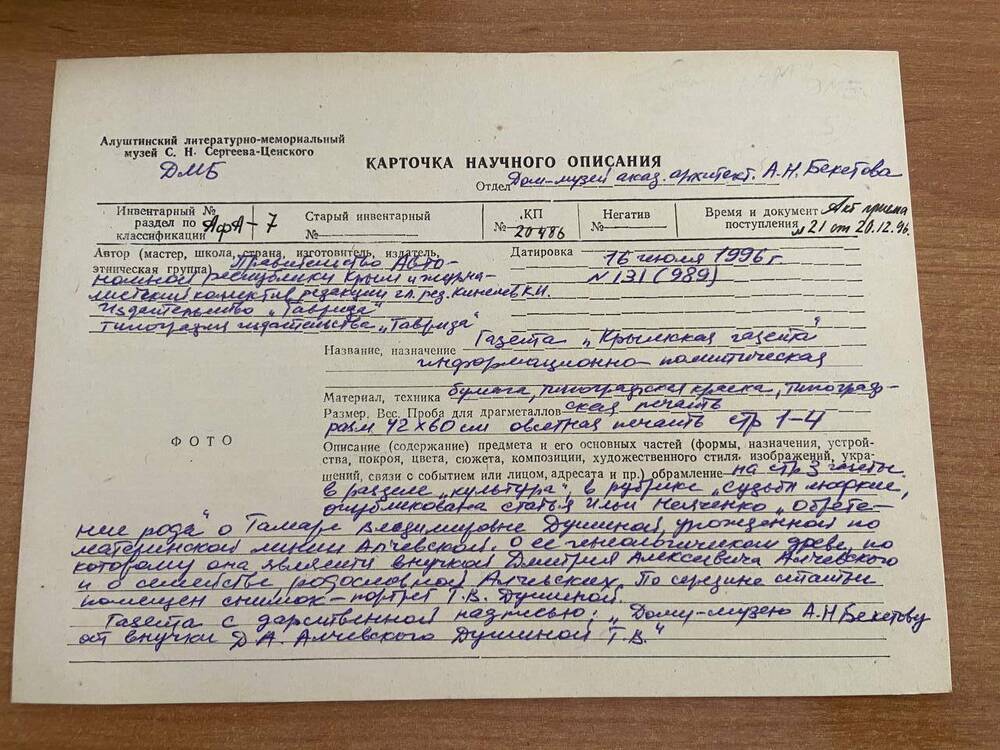 Алуштинский литературно-мемориальный
музей С. Н. Сергеева-Ценского
ДМБ
КАРТОЧКА НАУЧНОГО ОПИСАНИЯ
Отдел Дом-музей акад. архитект. А.Н. Бекетова
Инвентарный №
раздел по
классификации АфА-7
Старый инвентарный
№
КП
№ 20486
Негатив
№
Время и документ Акт приема
поступления №21 от 20.12.96.
Автор (мастер, школа, страна, изготовитель, издатель,
этническая группа) Правительство Авто-
номной республики Крым и журна-
листский колектив редакции гл. ред. Кинелев К.И.
Издательство „Таврида"
типография издательства „Таврида"
Датировка 16 июля 1996 г
N 131 (989)
Название, назначение Газета „Крымская газета"
информационно-политическая
Материал, техника бумага, типографская краска, типограф-
ская печать
Размер. Вес. Проба для драгметаллов
разм 42 х 60 см офсетная печать стр 1-4
ФОТО
Описание (содержание) предмета и его основных частей (формы, назначения, устрой-
ства, покроя, цвета, сюжета, композиции, художественного стиля, изображений, укра-
шений, связи с событием или лицом, адресата и пр.) обрамление на стр 3 газеты
в разделе „культура", в рубрике „судьбы людские,
опубликована статья Ильи Немченко „Обрете-
ние рода" о Тамаре Владимировне Душиной, урожденной по
материнской линии Алчевской. О ее генеалогическом древе, по
которому она является внучкой Дмитрия Алексеевича Алчевского
и о семействе родословной Алчевских. По середине статьи
помещен снимок – портрет Т.В. Душиной.
Газета с дарственной надписью: „Дому-музею А.Н Бекетову
от внучки Д.А. Алчевского Душиной Т.В."